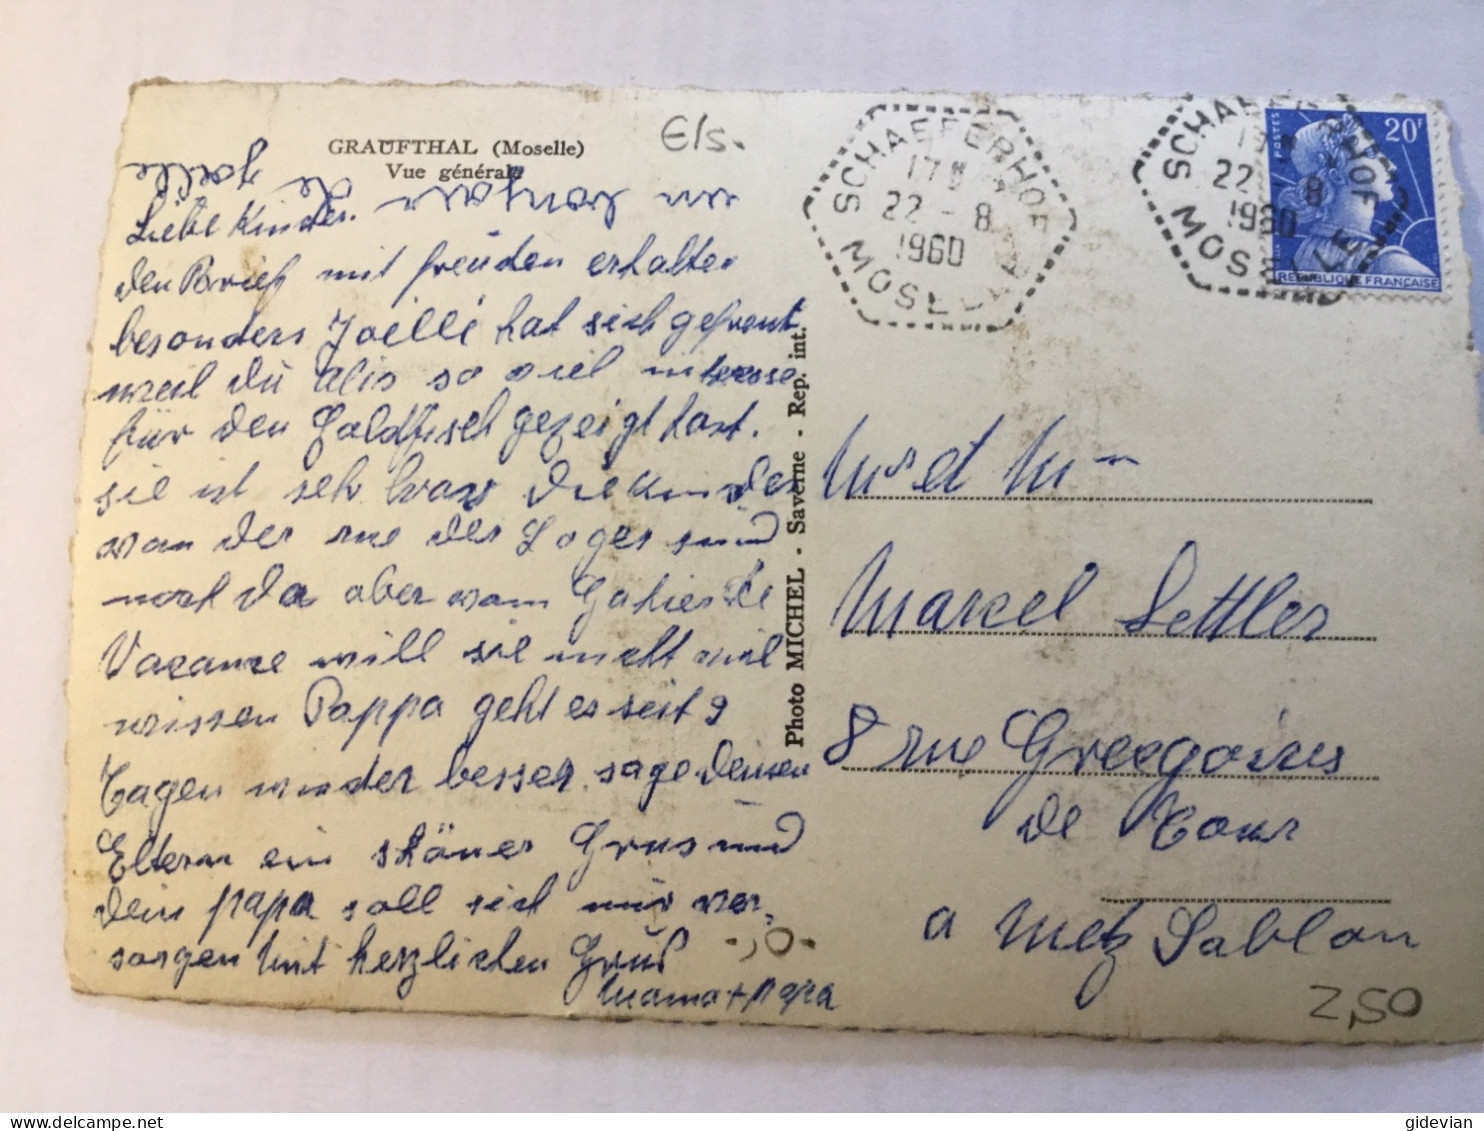 GRAUFTHAL (Moselle)
Vue générale
E/s.
un bonjour de
Joelle
Liebe Kinder.
den Brief mit freuden erhalten
besonders Joëlle hat sich gefreut
weil du alis so viel interesse
für den Goldfisch gezeigt hast.
sie ist sehr brav die kinder
von der rue des Loges sind
noch da aber vom
Vacance will sie nicht viel
wissen Pappa geht es seit 9
Tagen wieder besser. sage deinen
Eltern ein schöner Grus und
dein papa soll sich nur ver-
sorgen Mit herzlichen Grus
Mama + papa
-,0-
Photo MICHEL - Saverne - Rep. int.
SCHAEFERHOF
17H
22 - 8
1960
MOSELLE
SCHAEFERHOF
22 - 8
1960
MOSELLE
POSTES
20F
REPUBLIQUE FRANÇAISE
Mr et Me
Marcel Settler
8 rue Greegoires
de Tour
a Metz Sablon
2,50
gidevian